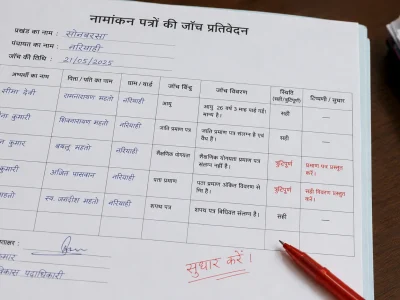 नामांकन पत्रों की जाँच प्रतिवेदन
प्रखंड का नाम : सोनबरसा
पंचायत का नाम : नरियाही
जाँच की तिथि : 21/05/2025
अभ्यर्थी का नाम पिता / पति का नाम ग्राम / वार्ड जाँच बिंदु जाँच विवरण स्थिति (सही/त्रुटिपूर्ण) टिप्पणी / सुधार
सीमा देवी रामनारायण महतो नरियाही आयु आयु 26 वर्ष 3 माह पाई गई। मान्य है। सही —
कुमार शिवनारायण महतो नरियाही जाति प्रमाण पत्र जाति प्रमाण पत्र संलग्न है एवं वैध है। सही —
कुमार बबलू महतो नरियाही शैक्षणिक योग्यता शैक्षणिक योग्यता प्रमाण पत्र संलग्न नहीं है। त्रुटिपूर्ण प्रमाण पत्र प्रस्तुत करें।
कुमारी अजित पासवान नरियाही पता प्रमाण पता प्रमाण अंकित विवरण से है। त्रुटिपूर्ण सही विवरण प्रस्तुत करें।
कुमारी स्व. जगदीश महतो नरियाही शपथ पत्र शपथ पत्र विधिवत संलग्न है। सही —
सुधार करें।
कुमार
विकास पदाधिकारी